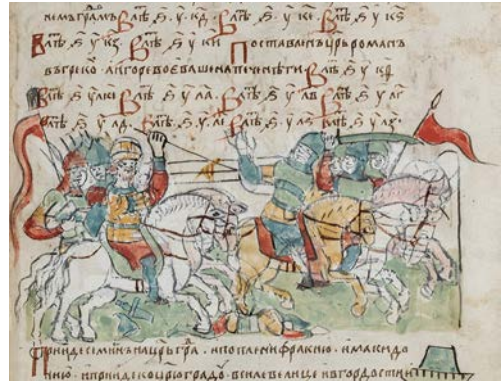 немъ грамъ · В лѣт҃ · ѕ҃ · у҃ · кд · В лѣт҃ · ѕ҃ · у҃ · ке · В лѣт҃ · ѕ҃ · у҃ · кѕ
В лѣт҃ · ѕ҃ · у҃ · кз · В лѣт҃ · ѕ҃ · у҃ · ки Поставленъ црь романъ
въ греко · а игорь воеваше на печенѣги · В лѣт҃ · ѕ҃ · у҃ · кѳ
В лѣт҃ · ѕ҃ · у҃ · В лѣт҃ · ѕ҃ · у҃ · ла · В лѣт҃ · ѕ҃ · у҃ · лв · В лѣт҃ · ѕ҃ · у҃ · лг
В лѣт҃ · ѕ҃ · у҃ · лд · В лѣт҃ · ѕ҃ · у҃ · ле В лѣт҃ · ѕ҃ · у҃ · лѕ В лѣт҃ · ѕ҃ · у҃ · лз ·
Прииде семионъ на црьгра · и поплени фракию · и макидо
нию · и приидѣ ко црюградѹ · в силе велице и в гордости